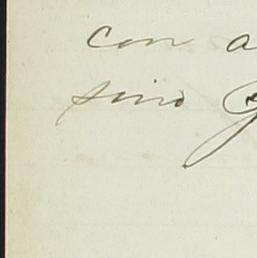 con a
sino